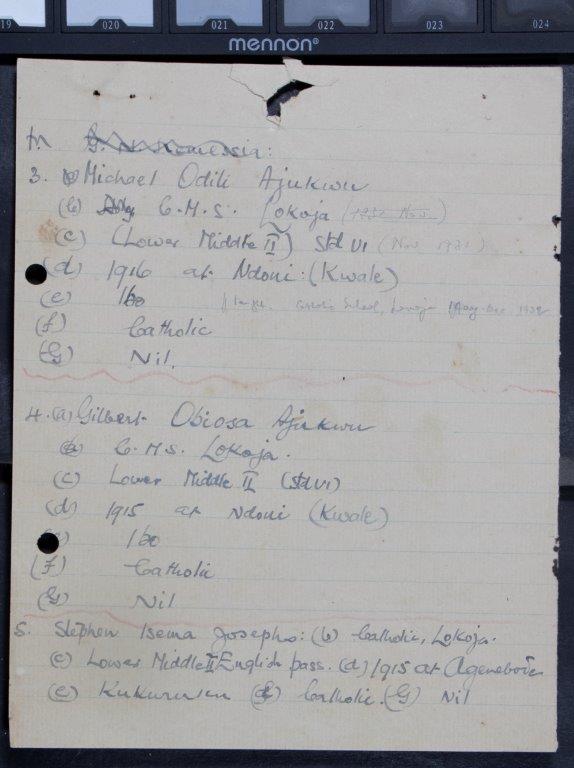 19 020 021 022 023 024
mennon®
3. (a) Michael Odili Ajukwu
(b) C.M.S. Lokoja (1932 Nov.)
(c) (Lower Middle II) Std VI (Nov 1931)
(d) 1916 at Ndoni: (Kwale)
(e) Ibo
Catholic School, Lokoja May-Dec 1932
(f) Catholic
(G) Nil.
4. (a) Gilbert Obiosa Ajukwu
(b) C.M.S. Lokoja.
(c) Lower Middle II (Std VI)
(d) 1915 at Ndoni (Kwale)
Ibo
(f) Catholic
(G) Nil
5. Stephen Isema Josephs: (b) Catholic, Lokoja.
(c) Lower Middle II English pass. (d) 1915 at Agenebode
(e) Kukuruku (f) Catholic. (G) Nil